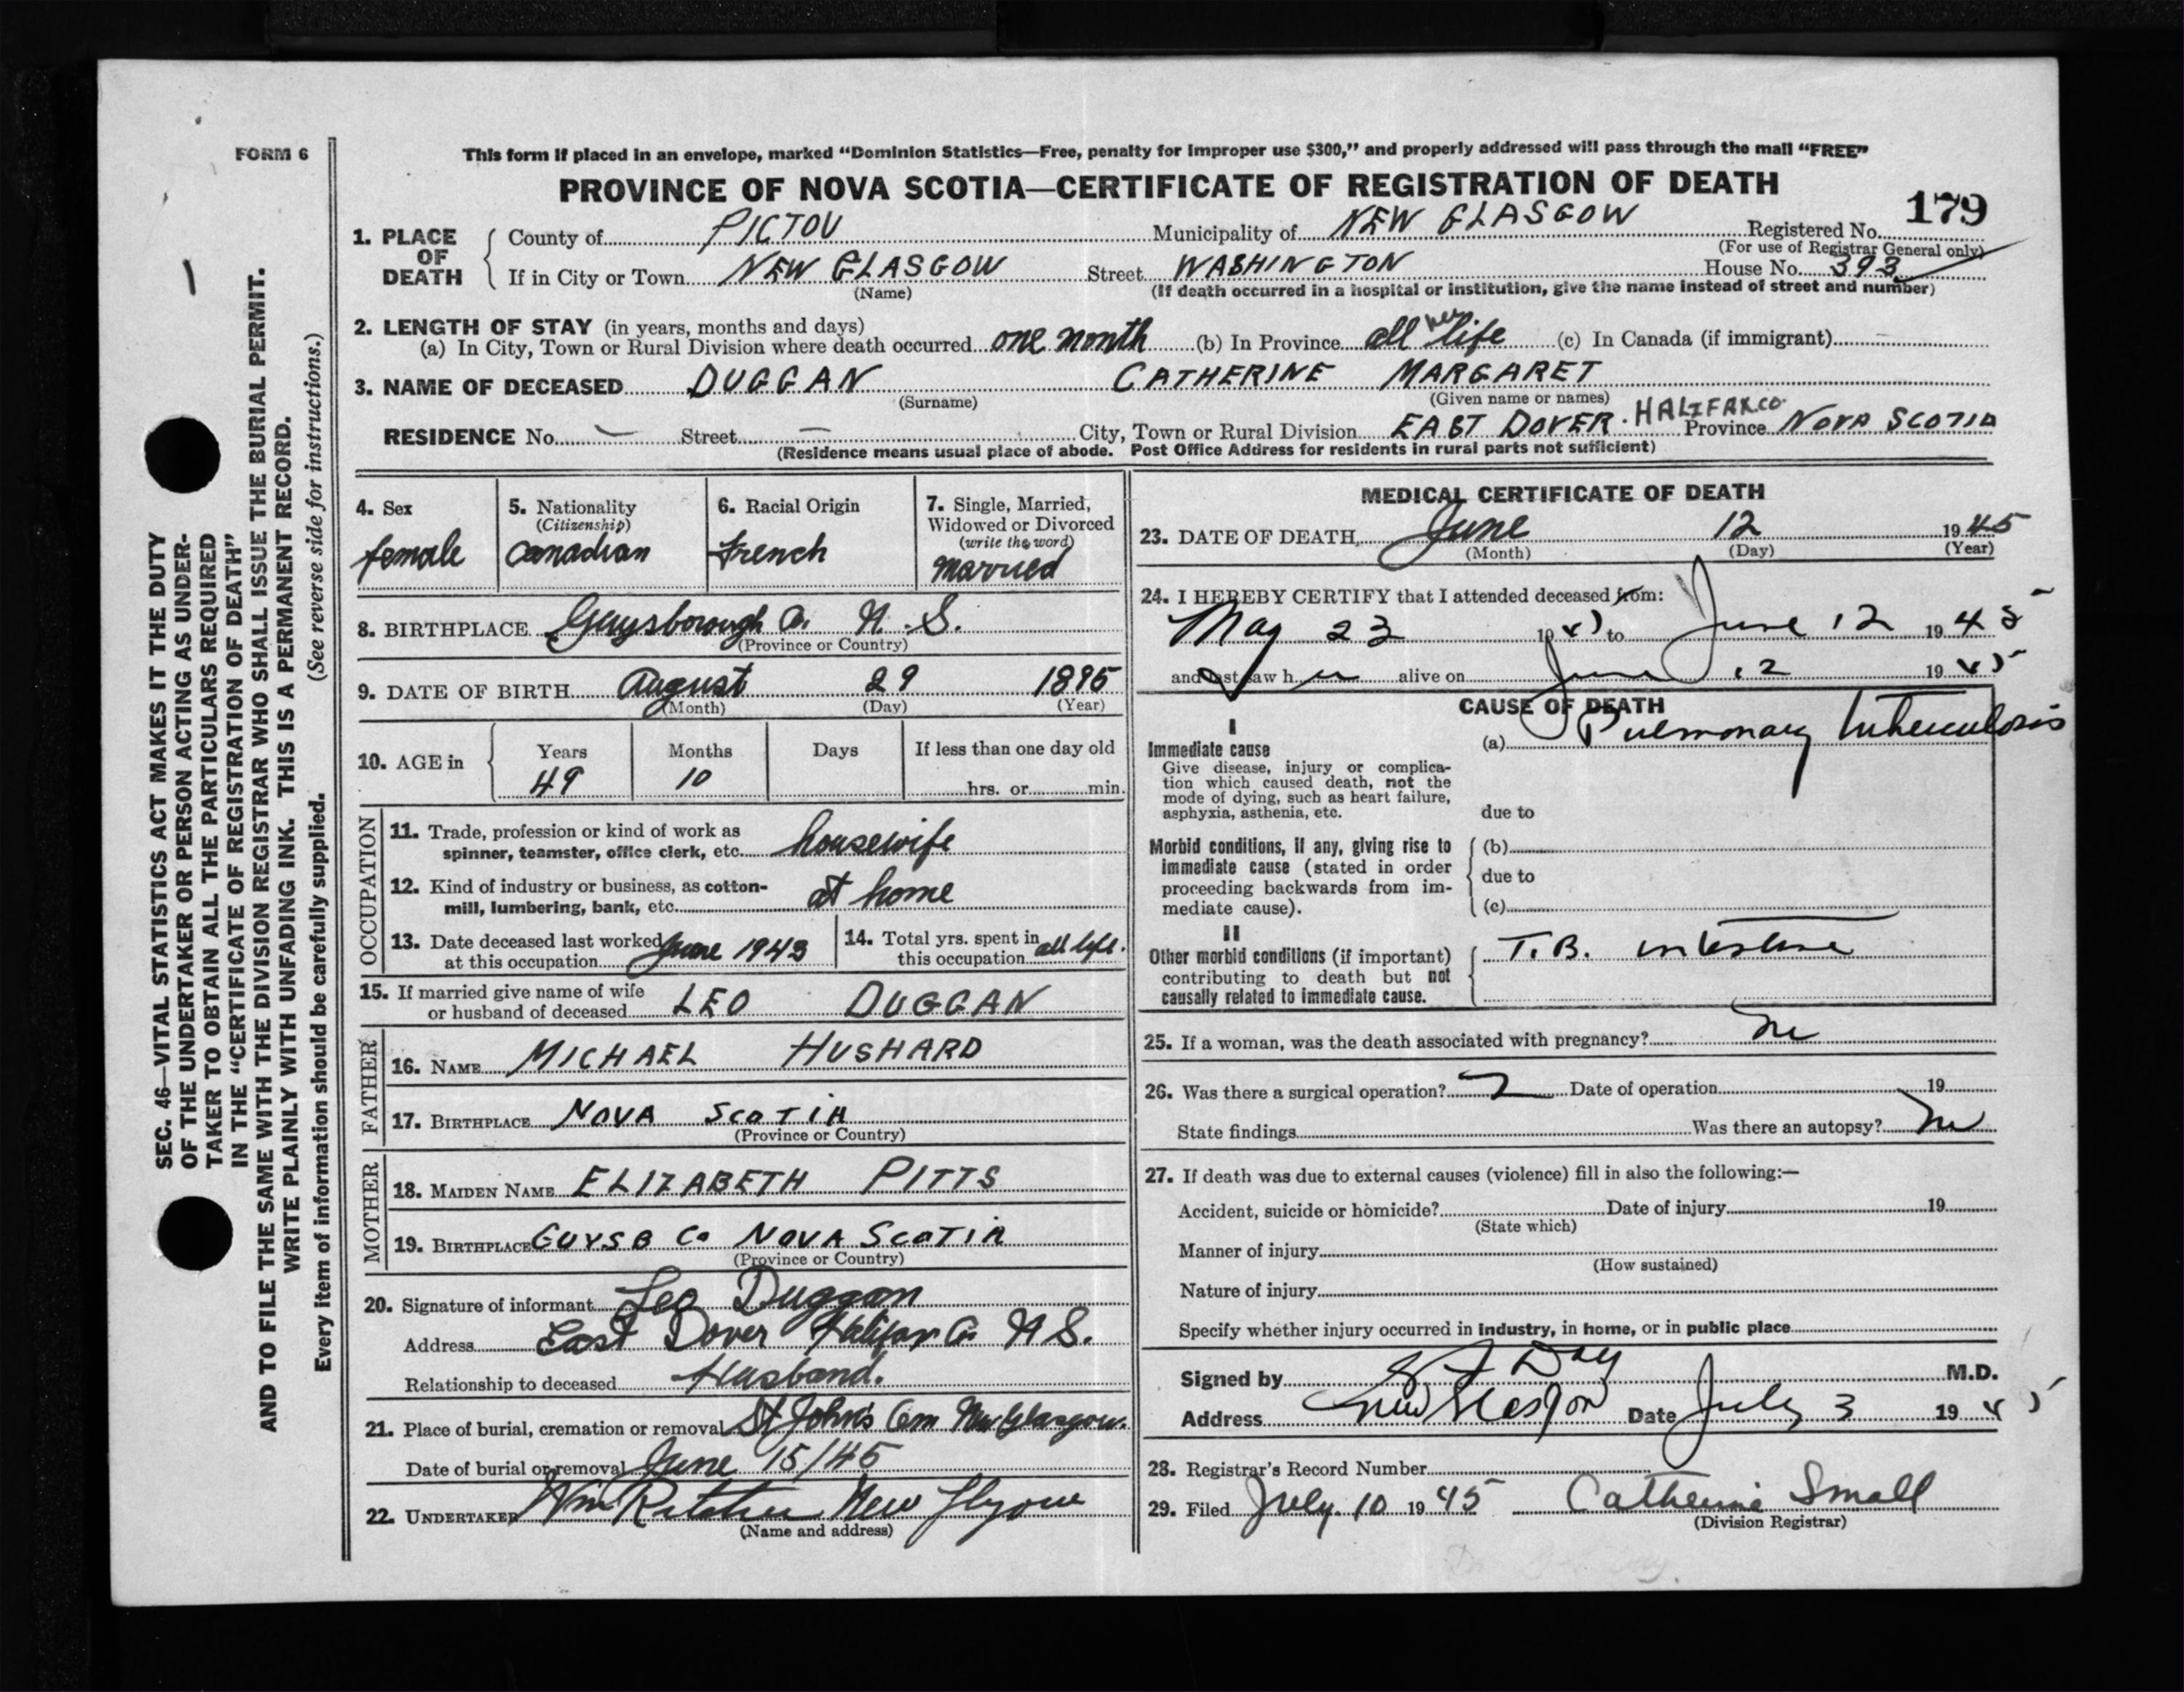 FORM 6
This form if placed in an envelope, marked “Dominion Statistics—Free, penalty for improper use $300,” and properly addressed will pass through the mail “FREE”
PROVINCE OF NOVA SCOTIA—CERTIFICATE OF REGISTRATION OF DEATH
179
1. PLACE OF DEATH
County of PICTOU Municipality of NEW GLASGOW Registered No.
(For use of Registrar General only)
If in City or Town NEW GLASGOW Street WASHINGTON House No. 393
(Name) (If death occurred in a hospital or institution, give the name instead of street and number)
2. LENGTH OF STAY (in years, months and days)
(a) In City, Town or Rural Division where death occurred one month (b) In Province all her life (c) In Canada (if immigrant)
3. NAME OF DECEASED DUGGAN CATHERINE MARGARET
(Surname) (Given name or names)
RESIDENCE No. — Street — City, Town or Rural Division EAST DOVER. HALIFAX CO. Province NOVA SCOTIA
(Residence means usual place of abode. Post Office Address for residents in rural parts not sufficient)
4. Sex
female
5. Nationality
(Citizenship)
Canadian
6. Racial Origin
French
7. Single, Married, Widowed or Divorced
(write the word)
married
8. BIRTHPLACE Guysborough Co. N.S.
(Province or Country)
9. DATE OF BIRTH August 29 1895
(Month) (Day) (Year)
10. AGE in Years Months Days If less than one day old
49 10 hrs. or min.
OCCUPATION
11. Trade, profession or kind of work as
spinner, teamster, office clerk, etc. housewife
12. Kind of industry or business, as cotton-
mill, lumbering, bank, etc. at home
13. Date deceased last worked
at this occupation June 1943
14. Total yrs. spent in
this occupation all life.
15. If married give name of wife
or husband of deceased LEO DUGGAN
FATHER
16. NAME MICHAEL HUSHARD
17. BIRTHPLACE NOVA SCOTIA
(Province or Country)
MOTHER
18. MAIDEN NAME ELIZABETH PITTS
19. BIRTHPLACE GUYSB CO NOVA SCOTIA
(Province or Country)
20. Signature of informant Leo Duggan
Address East Dover Halifax Co N S.
Relationship to deceased Husband.
21. Place of burial, cremation or removal St John's Cem New Glasgow.
Date of burial or removal June 15/45
22. UNDERTAKER Wm Ritchie New Glasgow
(Name and address)
MEDICAL CERTIFICATE OF DEATH
23. DATE OF DEATH June 12 1945
(Month) (Day) (Year)
24. I HEREBY CERTIFY that I attended deceased from:
May 23 1945 to June 12 1945
and last saw her alive on June 12 1945
CAUSE OF DEATH
I
Immediate cause
Give disease, injury or complica-
tion which caused death, not the
mode of dying, such as heart failure,
asphyxia, asthenia, etc.
(a) Pulmonary tuberculosis
due to
Morbid conditions, if any, giving rise to
immediate cause (stated in order
proceeding backwards from im-
mediate cause).
(b)
due to
(c)
II
Other morbid conditions (if important)
contributing to death but not
causally related to immediate cause.
T.B. intestine
25. If a woman, was the death associated with pregnancy? no
26. Was there a surgical operation? Date of operation 19
State findings Was there an autopsy? no
27. If death was due to external causes (violence) fill in also the following:—
Accident, suicide or homicide? Date of injury 19
(State which)
Manner of injury
(How sustained)
Nature of injury
Specify whether injury occurred in industry, in home, or in public place
Signed by Day M.D.
Address New Glasgow Date July 3 1945
28. Registrar's Record Number
29. Filed July 10 1945 Catherine Small
(Division Registrar)
SEC. 46—VITAL STATISTICS ACT MAKES IT THE DUTY
OF THE UNDERTAKER OR PERSON ACTING AS UNDER-
TAKER TO OBTAIN ALL THE PARTICULARS REQUIRED
IN THE “CERTIFICATE OF REGISTRATION OF DEATH”
AND TO FILE THE SAME WITH THE DIVISION REGISTRAR WHO SHALL ISSUE THE BURIAL PERMIT.
WRITE PLAINLY WITH UNFADING INK. THIS IS A PERMANENT RECORD.
Every item of information should be carefully supplied. (See reverse side for instructions.)